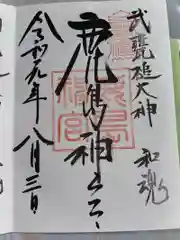 武甕槌大神
和魂
鹿島神宮
令和元年八月三日